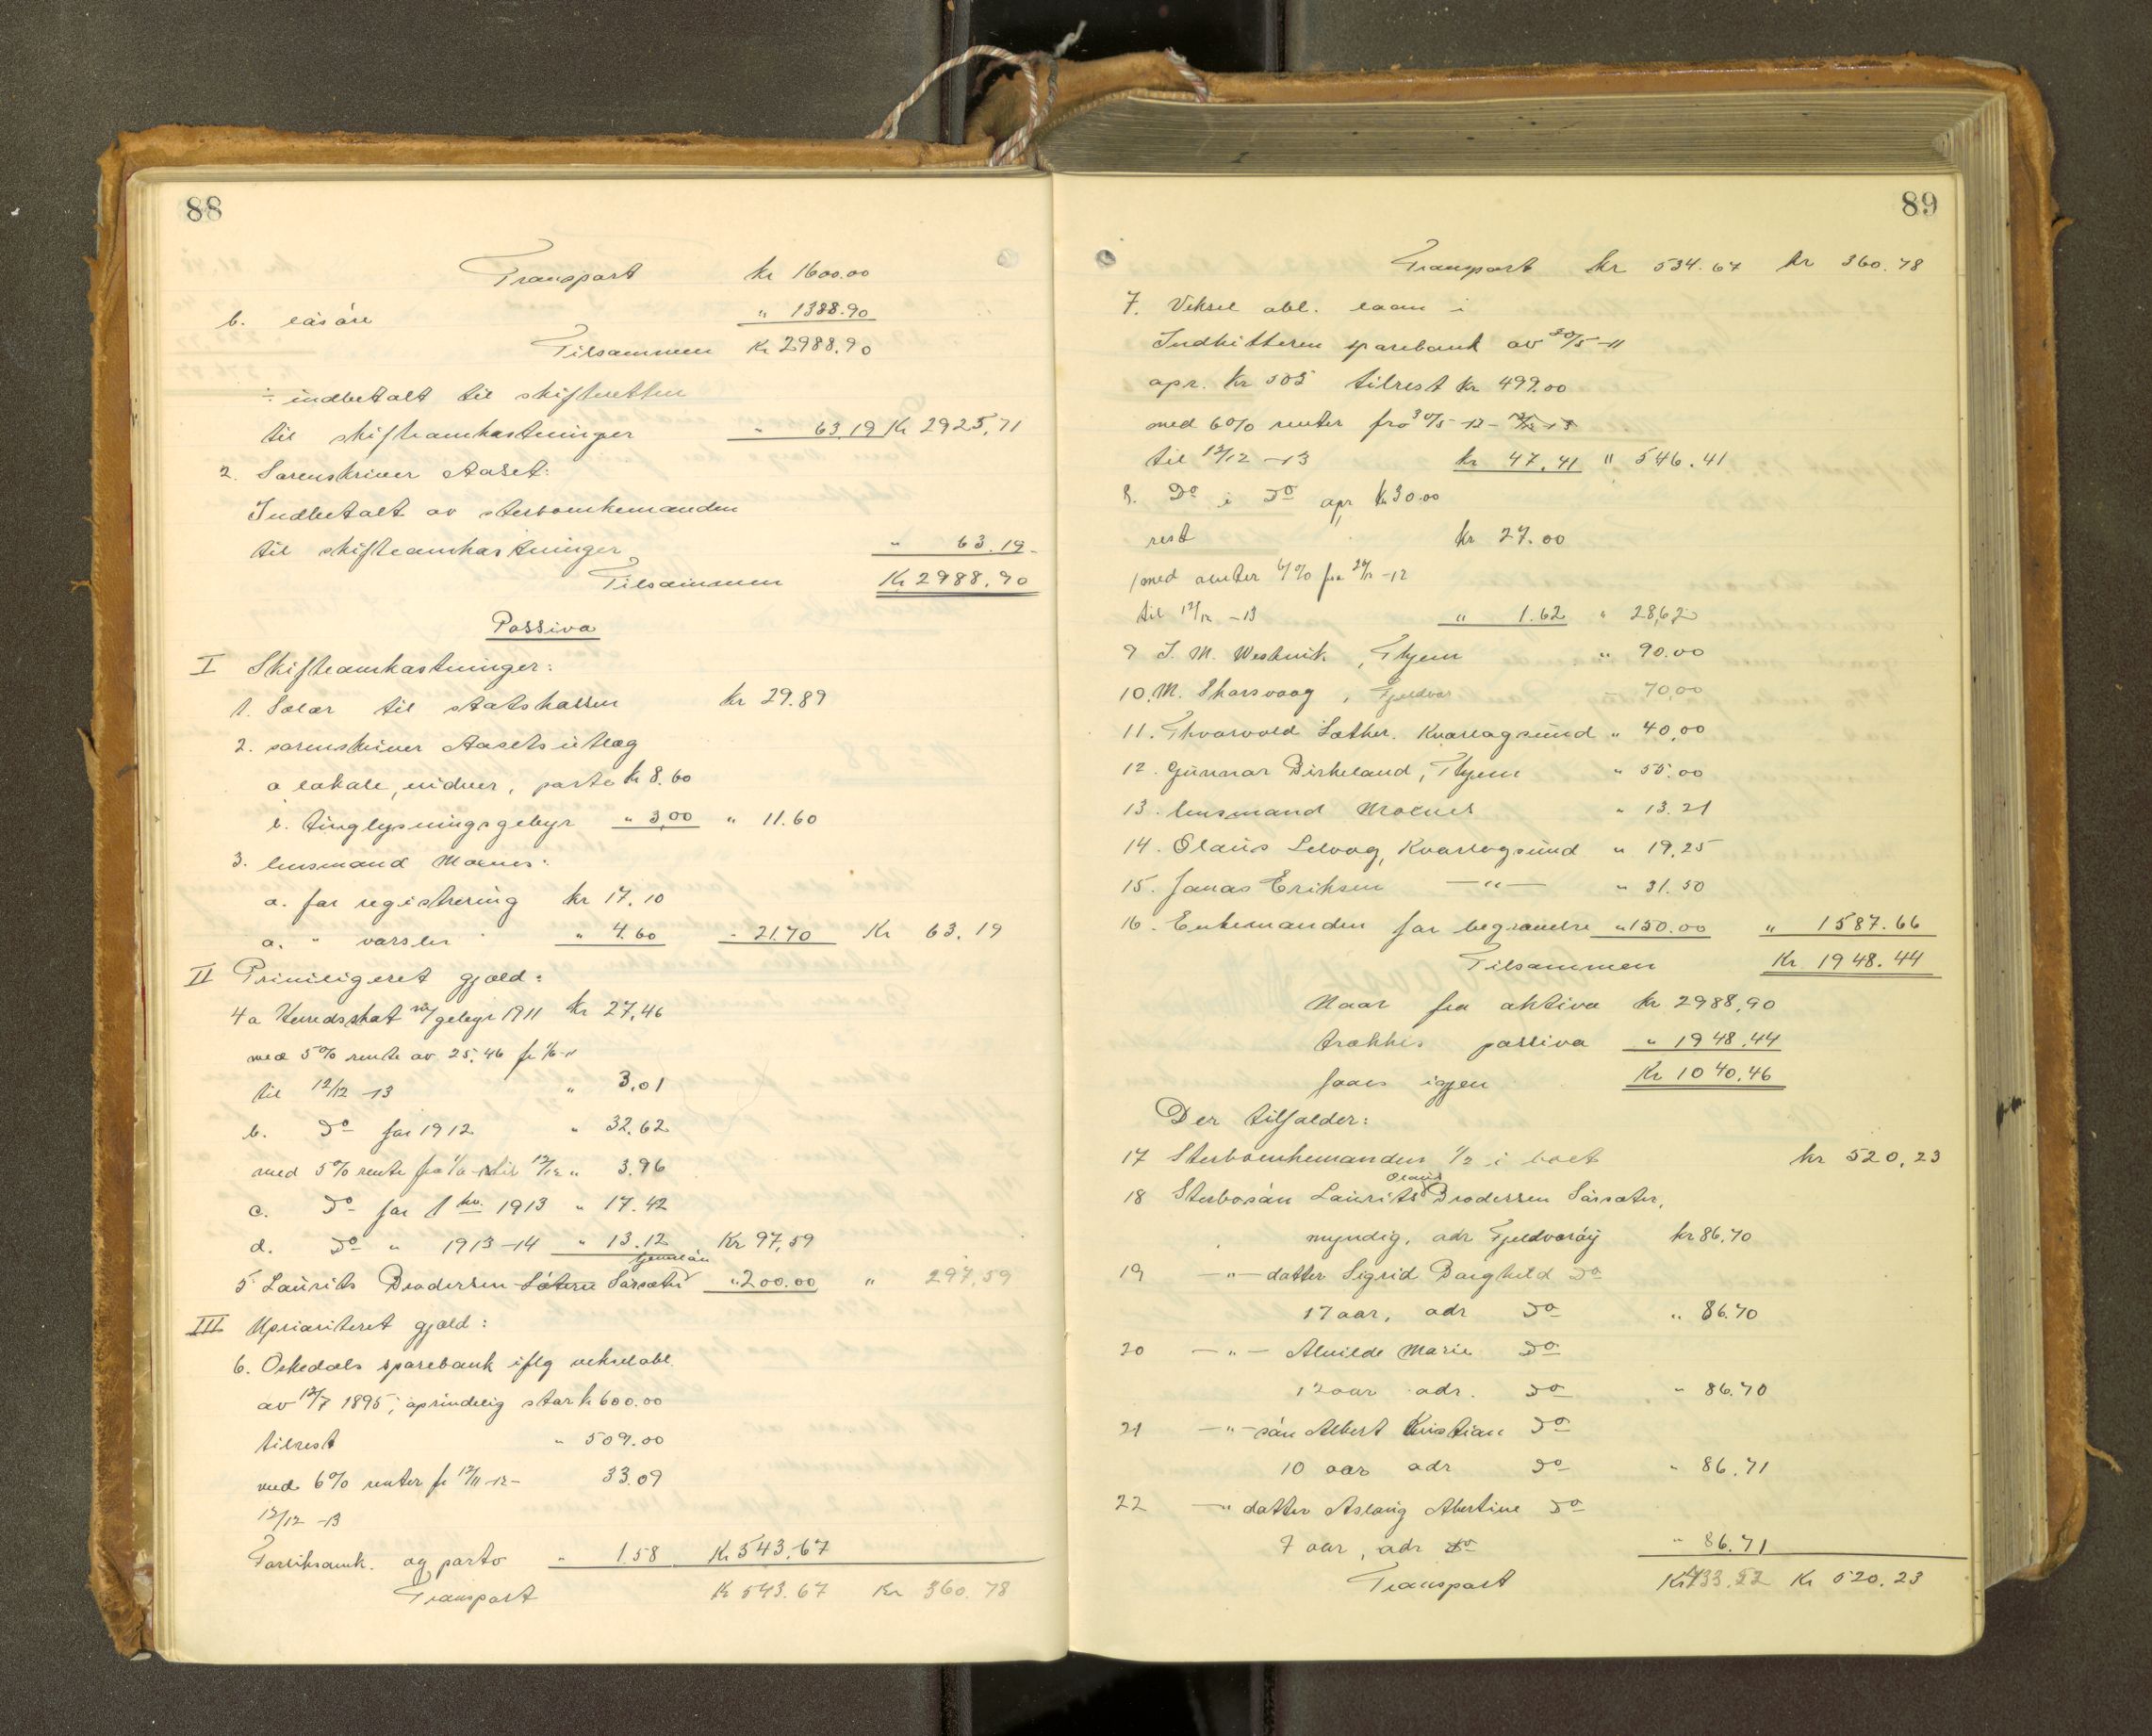 88
Transport kr 1600.00
b. løsøre " 1388.90
Tilsammen Kr 2988.90
÷ indbetalt til skifteretten
til skifteomkostninger " 63.19 Kr 2925,71
2. Sorenskriver Aaset:
Indbetalt av sterboenkemanden
til skifteomkostninger " 63.19
Tilsammen Kr 2988.90
Passiva
I Skifteomkostninger:
1. Salær til statskassen kr 29.89
2. sorenskriver Aasets utlæg
a lokale, vidner, porto kr 8.60
b. tinglysningsgebyr " 3,00 " 11.60
3. lensmand Moenes:
a. for registrering kr 17.10
a. " varsler " 4.60 - 21.70 Kr 63.19
II Priviligeret gjæld:
4a Herredsskat m/gebyr 1911 kr 27,46
med 5% rente av 25,46 fr 1/8-11
til 12/12 -13 " 3,01
b. Do for 1912 " 32.62
med 5% rente fra til 12/12 " 3.96
c. Do for 1 hv. 1913 " 17.42
d. Do " 1913-14 " 13.12 Kr 97,59
5 Laurits Brodersen Sørsæter tjenerløn "200.00 " 297,59
III Uprioriteret gjæld:
6. Oskedals sparebank iflg vekselobl.
av 12/7 1895, oprindelig stor kr 600.00
tilrest " 509.00
med 6% renter fr 12/11-12- 33.09
12/12 -13
Forsiksomk. og porto " 1.58 Kr 543.67
Transport Kr 543.67 Kr 360.78
89
Transport kr 534.67 kr 360.78
7. Veksel obl. laan i
Indhitteren sparebank av 30/5-11
opr. kr 505 tilrest kr 499.00
med 6% renter fra 30/5-12-
til 12/12 -13 kr 47,41 " 546.41
8. Do i Do opr kr 30.00
rest kr 27.00
med renter 6% fra -12
til 12/12 -13 " 1.62 " 28,62
9 J. M. Westvik, Thjem " 90.00
10. M. Skorsvaag, Fjeldvær - 70,00
11. Thorvald Sæther. Kvarlagsund " 40,00
12. Gunnar Birkeland, Thjem " 55.00
13. lensmand Moenes " 13.21
14. Olaus Selvog, Kvarlagsund " 19,25
15. Jonas Eriksen —"— " 31.50
16. Enkemanden for begravelse "150.00 " 1587.66
Tilsammen Kr 1948.44
Naar fra aktiva kr 2988,90
trækkes passiva " 1948.44
faaes igjen Kr 1040,46
Der tilfalder:
17 Sterboenkemanden 1/2 i boet kr 520,23
18 Sterbosøn Laurits Olaus Brodersen Sørsæter,
myndig, adr Fjeldvarøy kr 86,70
19 —"— datter Sigrid Borghild Do
17 aar, adr Do " 86.70
20 —"— Alvilde Marie Do
12 aar adr. Do " 86.70
21 —"— søn Albert Kristian Do
10 aar adr Do " 86.71
22 —"— datter Aslaug Abertine Do
7 aar, adr Do " 86.71
Transport Kr 433.52 Kr 520.23